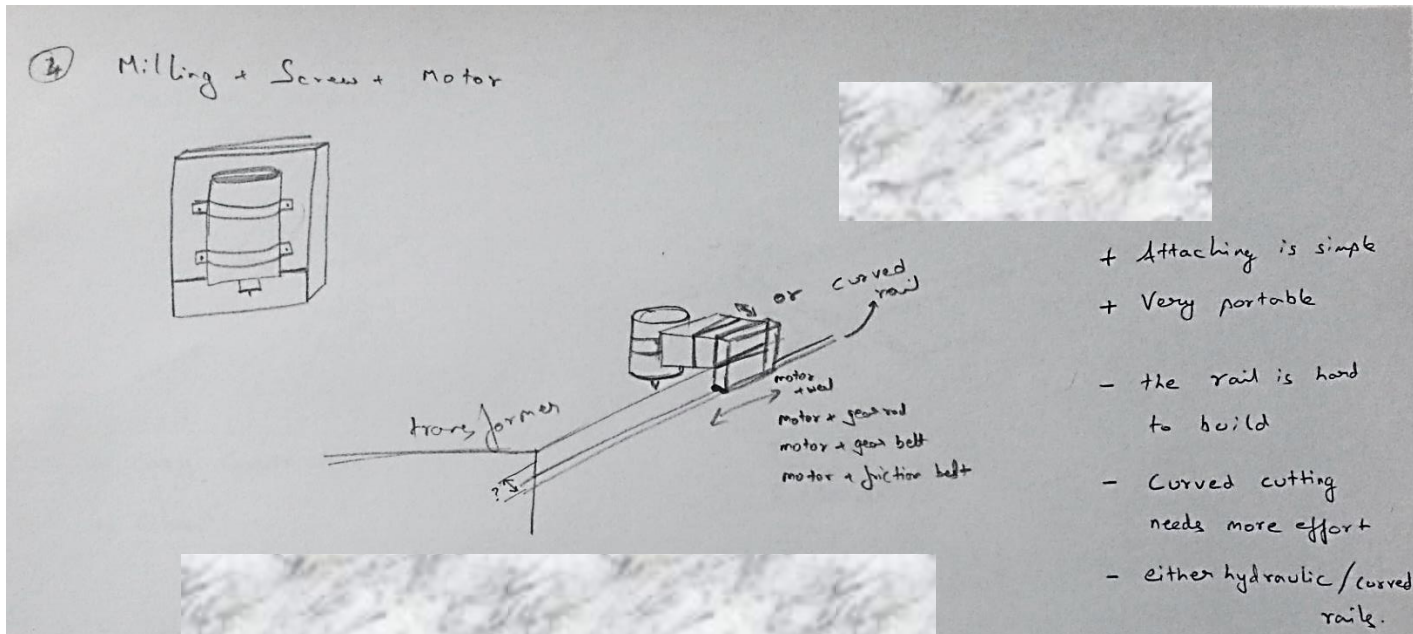 Milling + Screw + Motor
or curved
rail
transformer
?
motor
motor + gear rod
motor + gear belt
motor + friction belt
+ Attaching is simple
+ Very portable
- the rail is hard
to build
- Curved cutting
needs more effort
- either hydraulic / curved
rails.